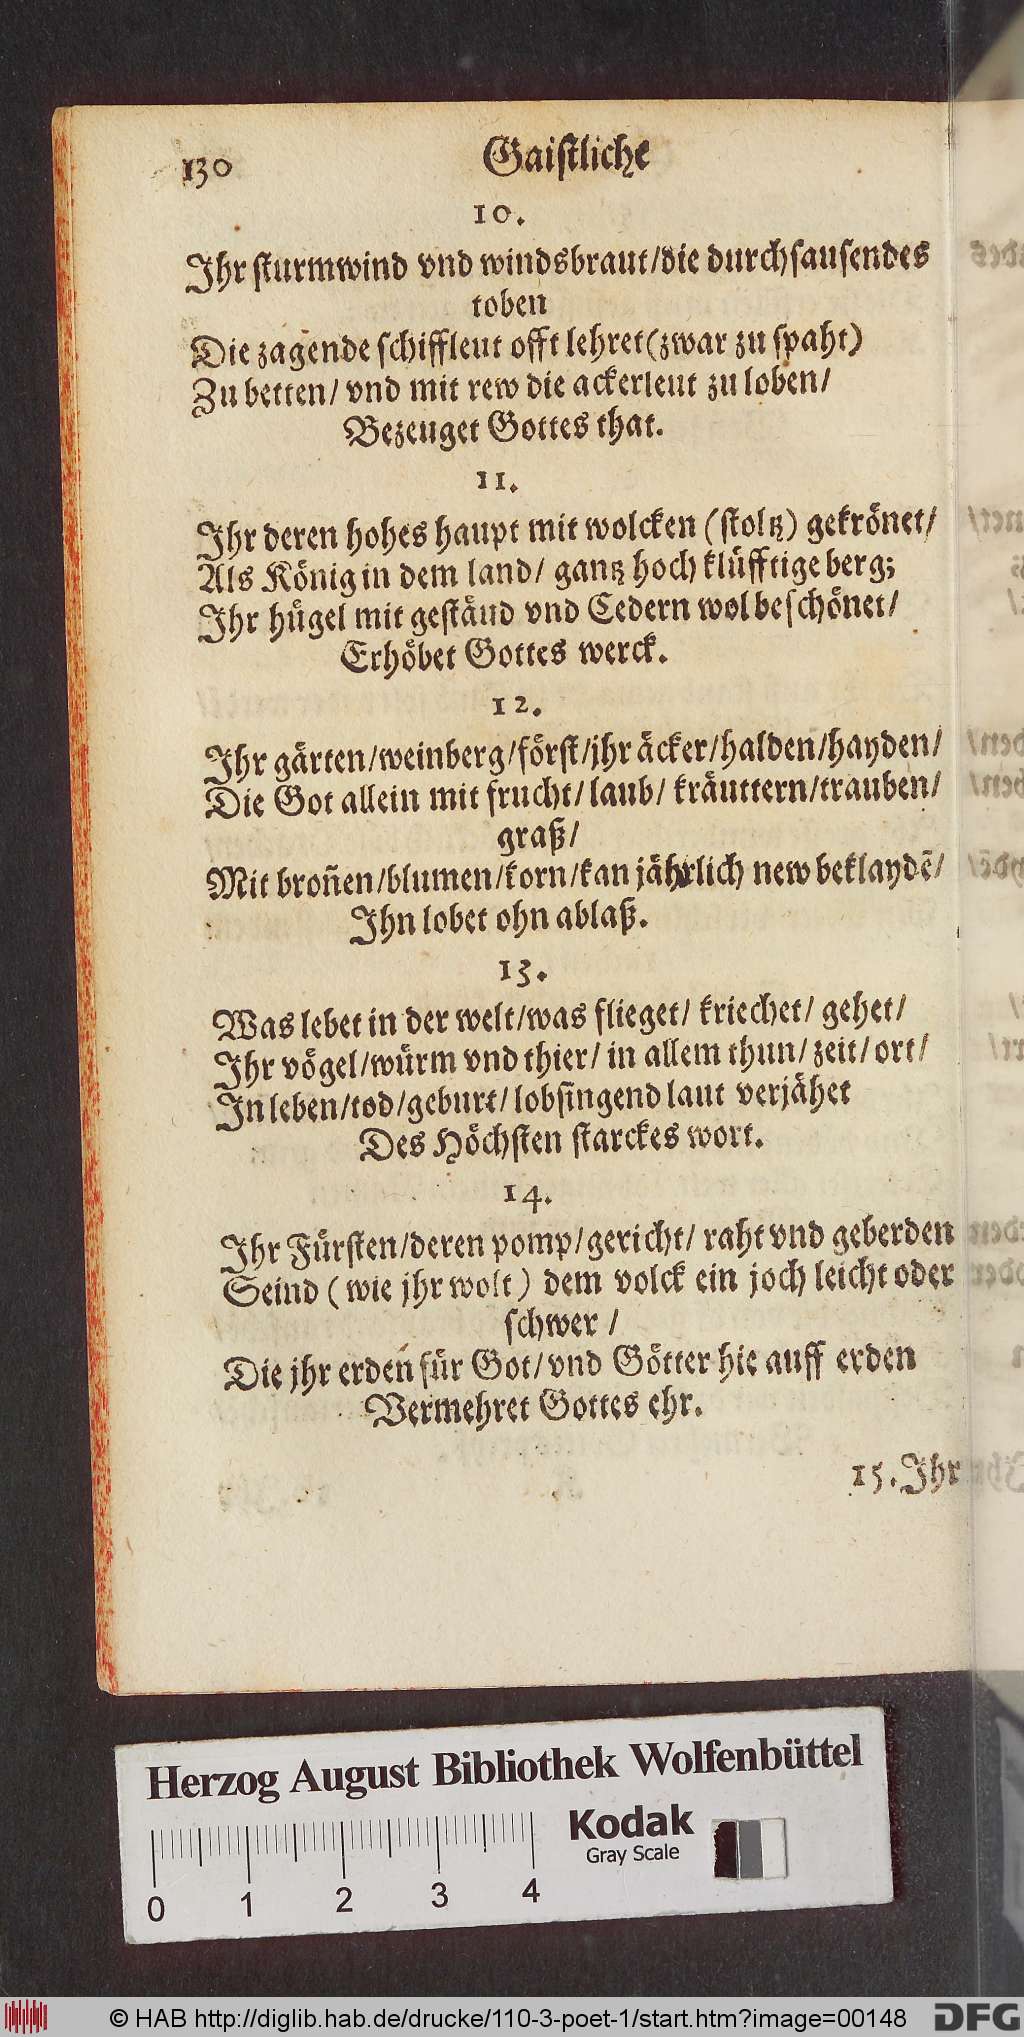 130 Gaistliche
10.
Ihr sturmwind vnd windsbraut/die durchsausendes
toben
Die zagende schiffleut offt lehret(zwar zu spaht)
Zu betten/ vnd mit rew die ackerleut zu loben/
Bezeuget Gottes that.
11.
Ihr deren hohes haupt mit wolcken (stoltz) gekrönet/
Als König in dem land/ gantz hoch klüfftige berg;
Ihr hügel mit gestäud vnd Cedern wol beschönet/
Erhöbet Gottes werck.
12.
Ihr gärten/weinberg/först/jhr äcker/halden/hayden/
Die Got allein mit frucht/laub/ kräuttern/trauben/
graß/
Mit broñen/blumen/korn/kan jährlich new beklaydẽ/
Ihn lobet ohn ablaß.
13.
Was lebet in der welt/was flieget/ kriechet/ gehet/
Ihr vögel/würm vnd thier/ in allem thun/ zeit/ ort/
In leben/tod/geburt/ lobsingend laut verjähet
Des Höchsten starckes wort.
14.
Ihr Fürsten/deren pomp/gericht/ raht vnd geberden
Seind (wie jhr wolt) dem volck ein joch leicht oder
schwer /
Die jhr erden für Got/vnd Götter hie auff erden
Vermehret Gottes ehr.
15. Ihr
Herzog August Bibliothek Wolfenbüttel
Kodak
Gray Scale
0 1 2 3 4
© HAB http://diglib.hab.de/drucke/110-3-poet-1/start.htm?image=00148
DFG